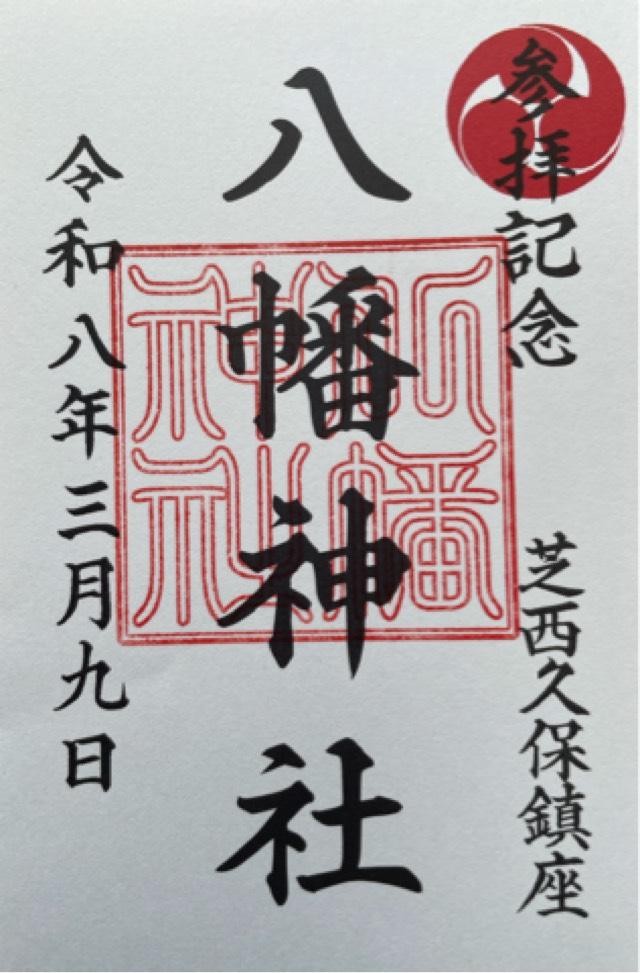 参拝記念
芝西久保鎮座
八幡神社
八幡神社
令和八年三月九日